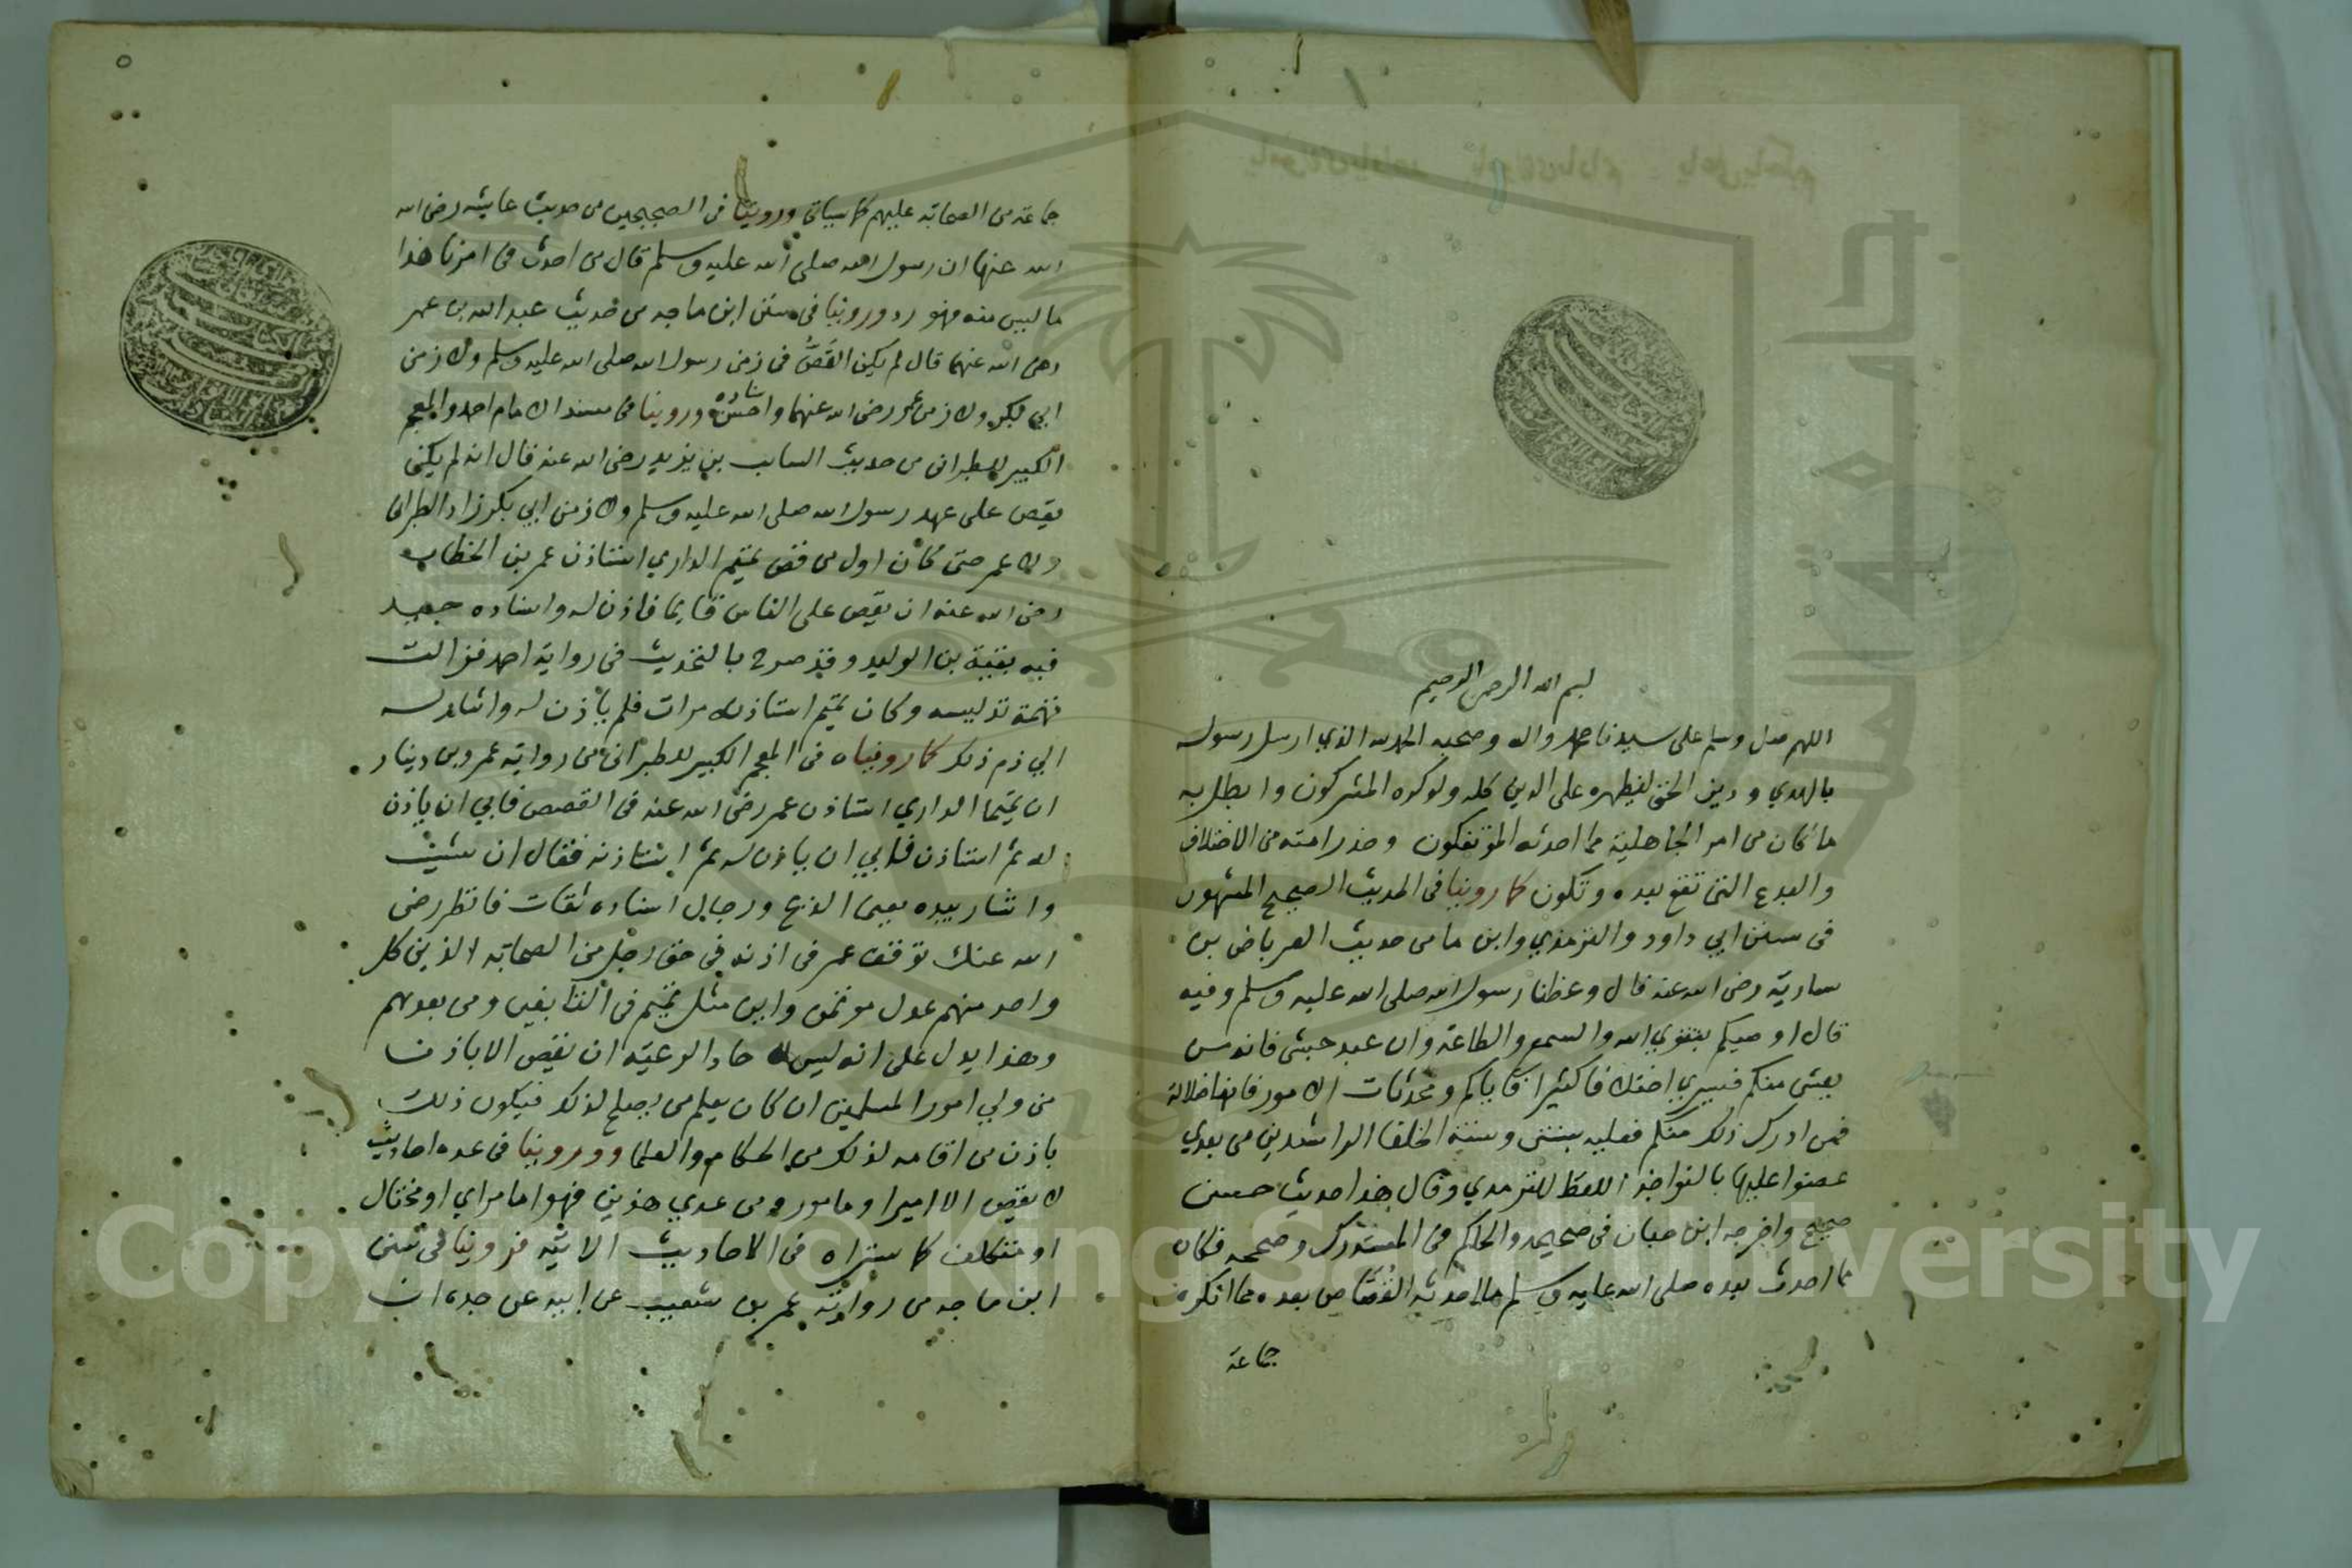 بسم الله الرحمن الرحيم
اللهم صل وسلم على سيدنا محمد واله وصحبه الحمد لله الذي ارسل رسوله
بالهدي ودين الحق ليظهره على الدين كله ولو كره المشركون وابطل به
ما كان من امر الجاهلية مما احدثه المؤتفكون وحذر امته من الاختلاف
والبدع التي تقع بعده وتكون كما روينا في الحديث الصحيح المشهور
في سنن ابي داود والترمذي وابن ما من حديث العرباض بن
سارية رضي الله عنه قال وعظنا رسول الله صلى الله عليه وسلم وفيه
قال اوصيكم بتقوي الله والسمع والطاعة وان عبد حبشي فانه من
يعش منكم فسيري اختلافا كثيرا فاياكم ومحدثات الامور فانها ضلالة
فمن ادرك ذلك منكم فعليه بسنتي وسنة الخلفا الراشدين من بعدي
عضوا عليها بالنواجذ اللفظ للترمدي وقال هذا حديث حسن
صحيح واخرجه ابن حبان في صحيحه والحاكم في المستدرك وصححه فكان
مما احدث بعده صلى الله عليه وسلم ما احدثه القُصَّاص بعده مما انكره
جماعة
جماعة من الصحابة عليهم كما سياتي وروينا في الصحيحين من حديث عايشه رضي الله
الله عنها ان رسول الله صلى الله عليه وسلم قال من احدث في امرنا هذا
ما ليس منه فهو رد وروينا في سنن ابن ماجه من حديث عبد الله بن عمر
رضي الله عنهما قال لم يكن القَصَصُ في زمن رسول الله صلى الله عليه وسلم ولا زمن
ابي بكر ولا زمن عمر رضي الله عنهما واسناده حسن وروينا في مسند الامام احمد والمعجم
الكبير للطبراني من حديث السايب بن يزيد رضي الله عنه قال انه لم يكن
يقص على عهد رسول الله صلى الله عليه وسلم ولا زمن ابي بكر زاد الطبراني
ولا عمر حتى كان اول من قص تميم الداري استاذن عمر بن الخطاب
رضي الله عنه ان يقص على الناس قايما فاذن له واسناده جيد
فيه بقية بن الوليد وقد صرح بالتحديث في رواية احمد فزالت
تهمة تدليسه وكان تميم استاذنه مرات فلم ياذن له واشار له
الي ذم ذلك كما رويناه في المعجم الكبير للطبراني من رواية عمرو بن دينار
ان تميما الداري استاذن عمر رضي الله عنه في القصص فابي ان ياذن
له ثم استاذن فابي ان ياذن له ثم استاذنه فقال ان شيت
واشار بيده يعني الذبح ورجال اسناده ثقات فانظر رضي
الله عنك توقف عمر في اذنه في حق رجل من الصحابة الذين كل
واحد منهم عدل موتمن واين مثل تميم في التابعين ومن بعدهم
وهذا يدل على انه ليس لاحاد الرعية ان يقص الا باذن
من ولي امور المسلمين ان كان يعلم من يصلح لذلك فيكون ذلك
باذن من اقامه لذلك من الحكام والعلما وروينا في عدة احاديث
لا يقص الا امير او مامور ومن عدي هذين فهو اما مراي او مختال
او متكلف كما ستراه في الاحاديث الاتية فروينا في سنن
ابن ماجه من رواية عمرو بن شعيب عن ابيه عن جده ان
Copyright © King Saud University
جامعة الملك سعود